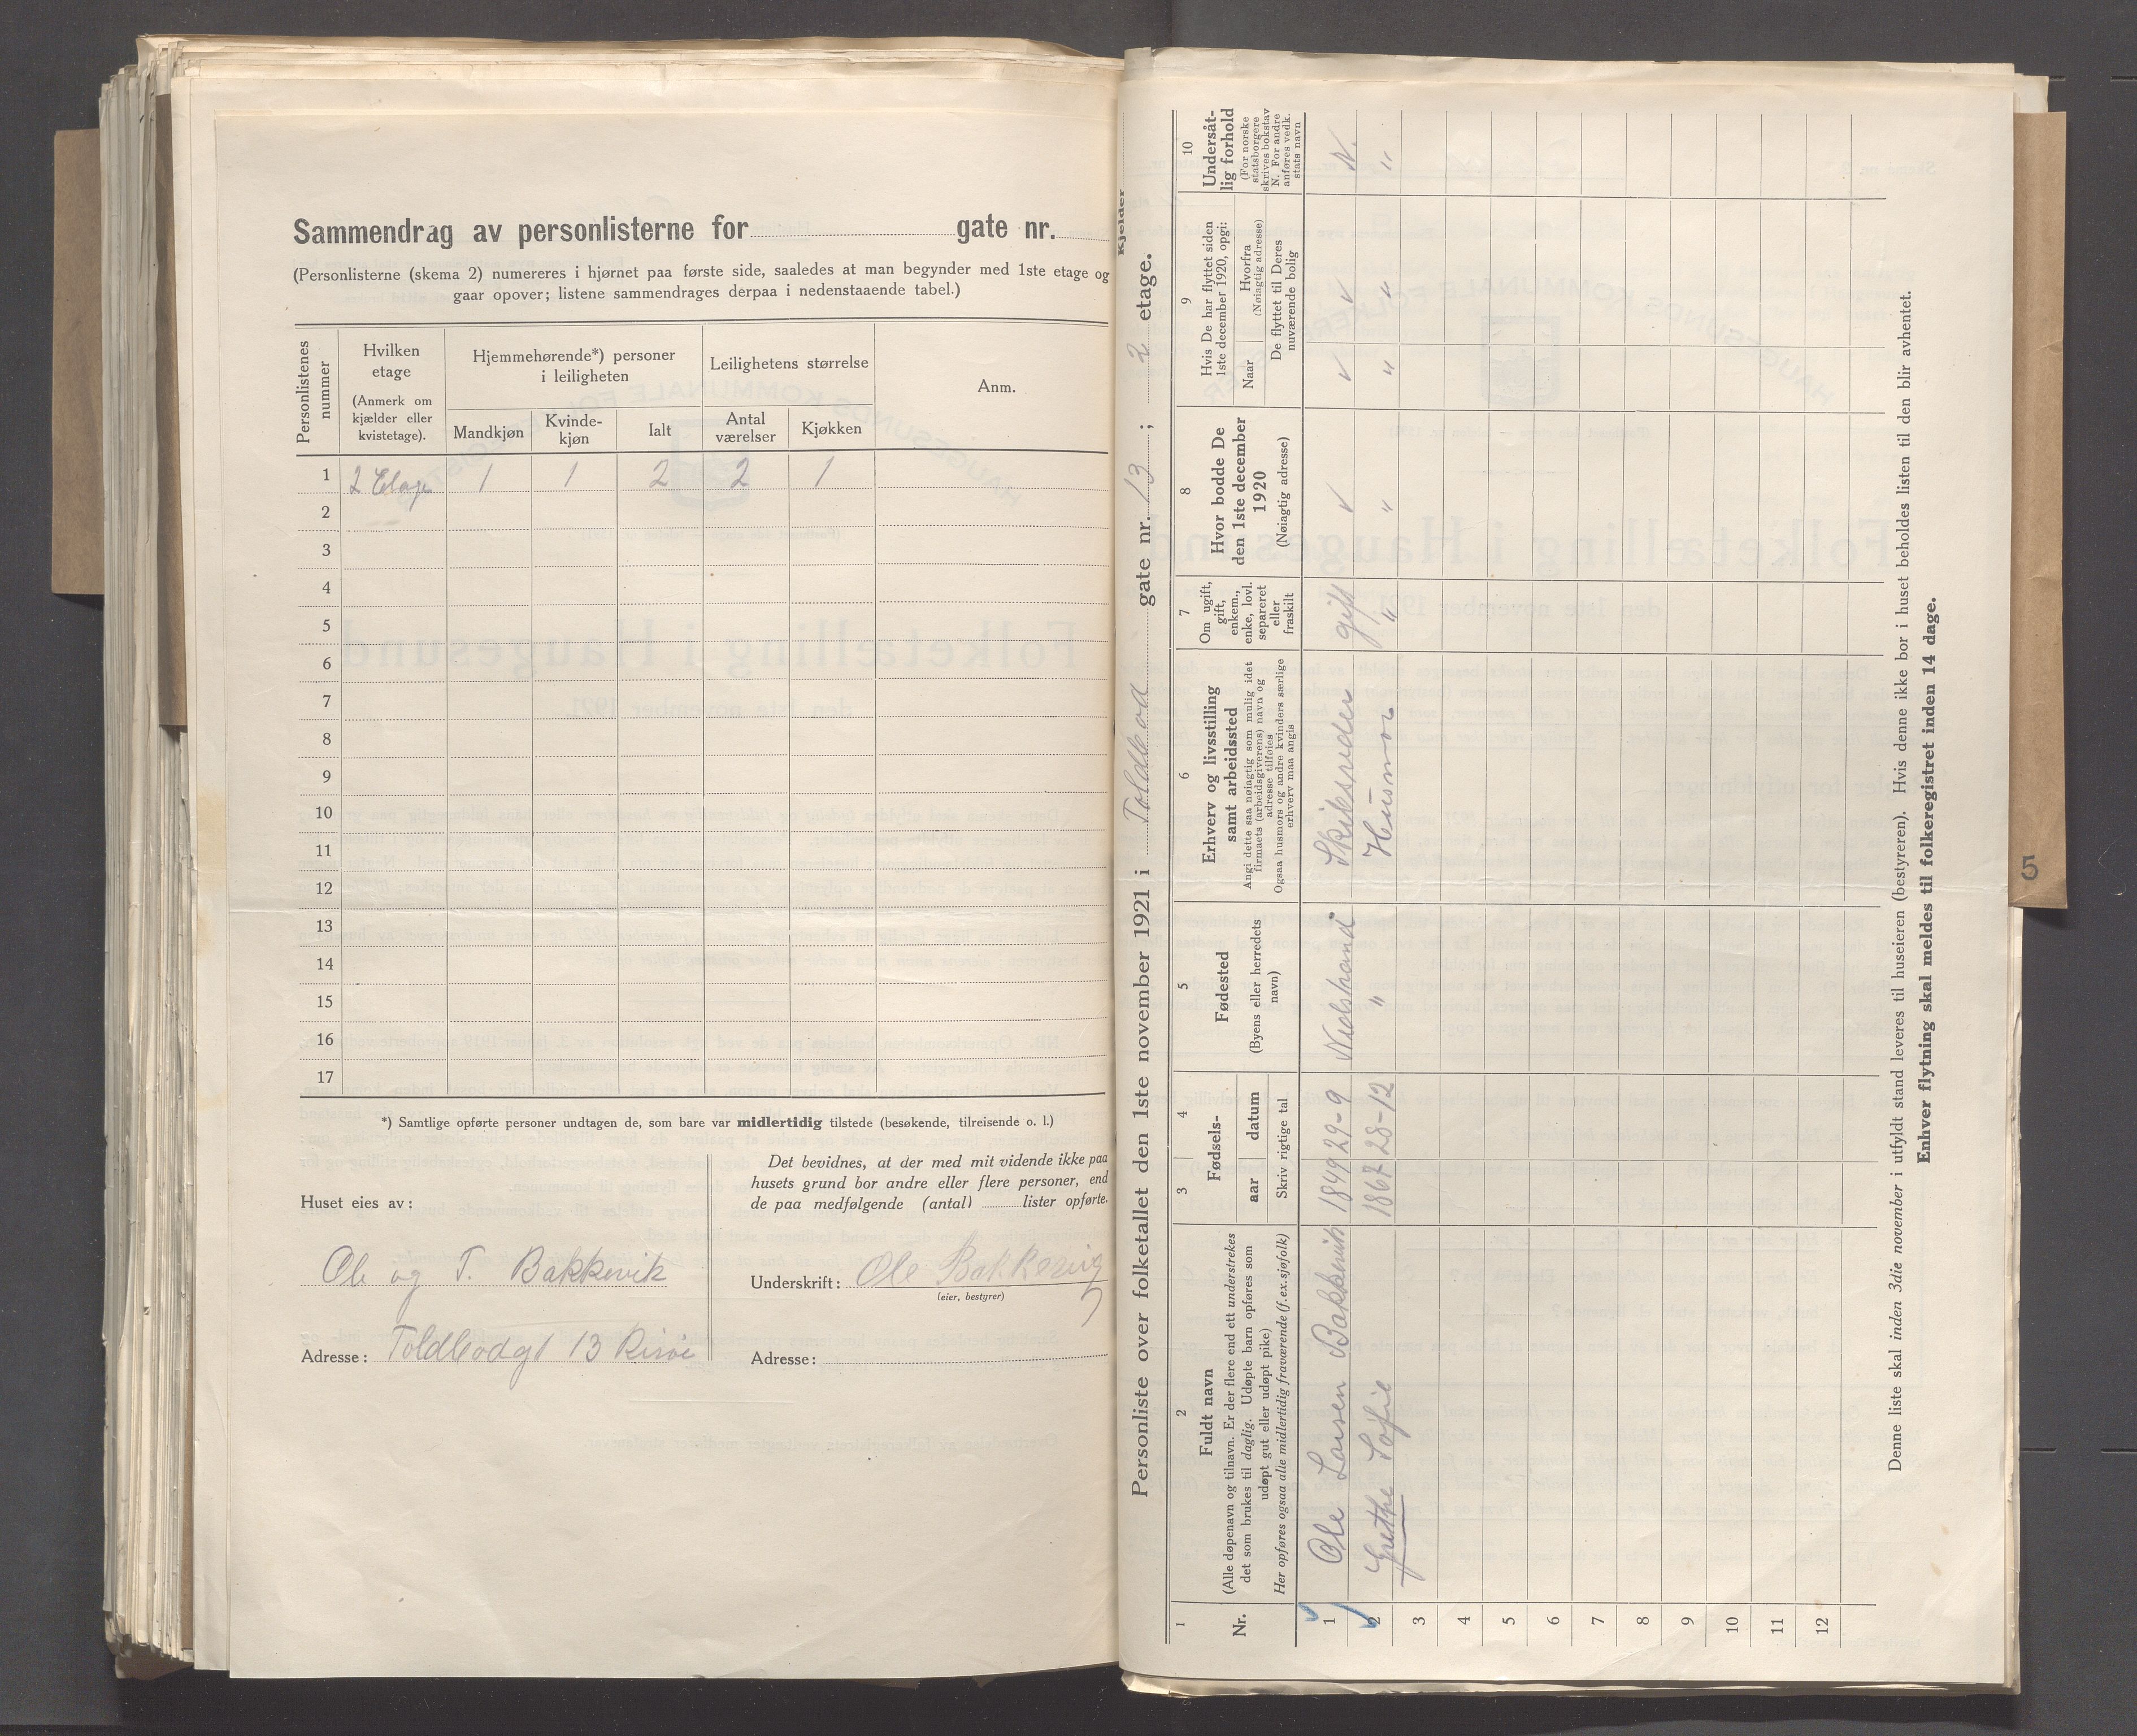 Sammendrag av personlisterne for gate nr.
(Personlisterne (skema 2) numereres i hjørnet paa første side, saaledes at man begynder med 1ste etage og
gaar opover; listene sammendrages derpaa i nedenstaaende tabel.)
Personlistenes nummer
Hvilken etage
(Anmerk om kjælder eller kvistetage).
Hjemmehørende*) personer i leiligheten
Mandkjøn Kvindekjøn Ialt
Leilighetens størrelse
Antal værelser Kjøkken
Anm.
1 2 Etage 1 1 2 2 1
2
3
4
5
6
7
8
9
10
11
12
13
14
15
16
17
*) Samtlige opførte personer undtagen de, som bare var midlertidig tilstede (besøkende, tilreisende o. l.)
Huset eies av:
Ole og T. Bakkevik
Adresse: Toldbodgt 13 Risøe
Det bevidnes, at der med mit vidende ikke paa
husets grund bor andre eller flere personer, end
de paa medfølgende (antal) lister opførte.
Underskrift: Ole Bakkevig
(eier, bestyrer)
Adresse:
Kjelder
Personliste over folketallet den 1ste november 1921 i Toldbod gate nr. 13; 2 etage.
1 2 3 4 5 6 7 8 9 10
Nr.
Fuldt navn
(Alle døpenavn og tilnavn. Er der flere end ett understrekes
det som brukes til daglig. Udøpte barn opføres som
udøpt gut eller udøpt pike)
Her opføres ogsaa alle midlertidig fraværende (f.ex. sjøfolk)
Fødsels-
aar datum
Skriv rigtige tal
Fødested
(Byens eller herredets
navn)
Erhverv og livsstilling
samt arbeidssted
Angi dette saa nøiagtig som mulig idet
firmaets (arbeidsgiverens) navn og
adresse tilføies
Ogsaa husmors og andre kvinders særlige
erhverv maa angis
Om ugift,
gift,
enkem.,
enke, lovl.
separeret
eller
fraskilt
Hvor bodde De
den 1ste december
1920
(Nøiagtig adresse)
Hvis De har flyttet siden
1ste december 1920, opgi:
Naar
Hvorfra
(Nøiagtig adresse)
De flyttet til Deres
nuværende bolig
Undersåt-
lig forhold
(For norske
statsborgere
skrives bokstav
N. For andre
anføres vedk.
stats navn
1 Ole Larsen Bakkevik 1849 29-9 Nedstrand Skibsreder gift √ √ √ N.
2 Grethe Sofie 1867 28-12 " Husmor " " " " "
3
4
5
6
7
8
9
10
11
12
Denne liste skal inden 3die november i utfyldt stand leveres til huseieren (bestyreren). Hvis denne ikke bor i huset beholdes listen til den blir avhentet.
Enhver flytning skal meldes til folkeregistret inden 14 dage.
5